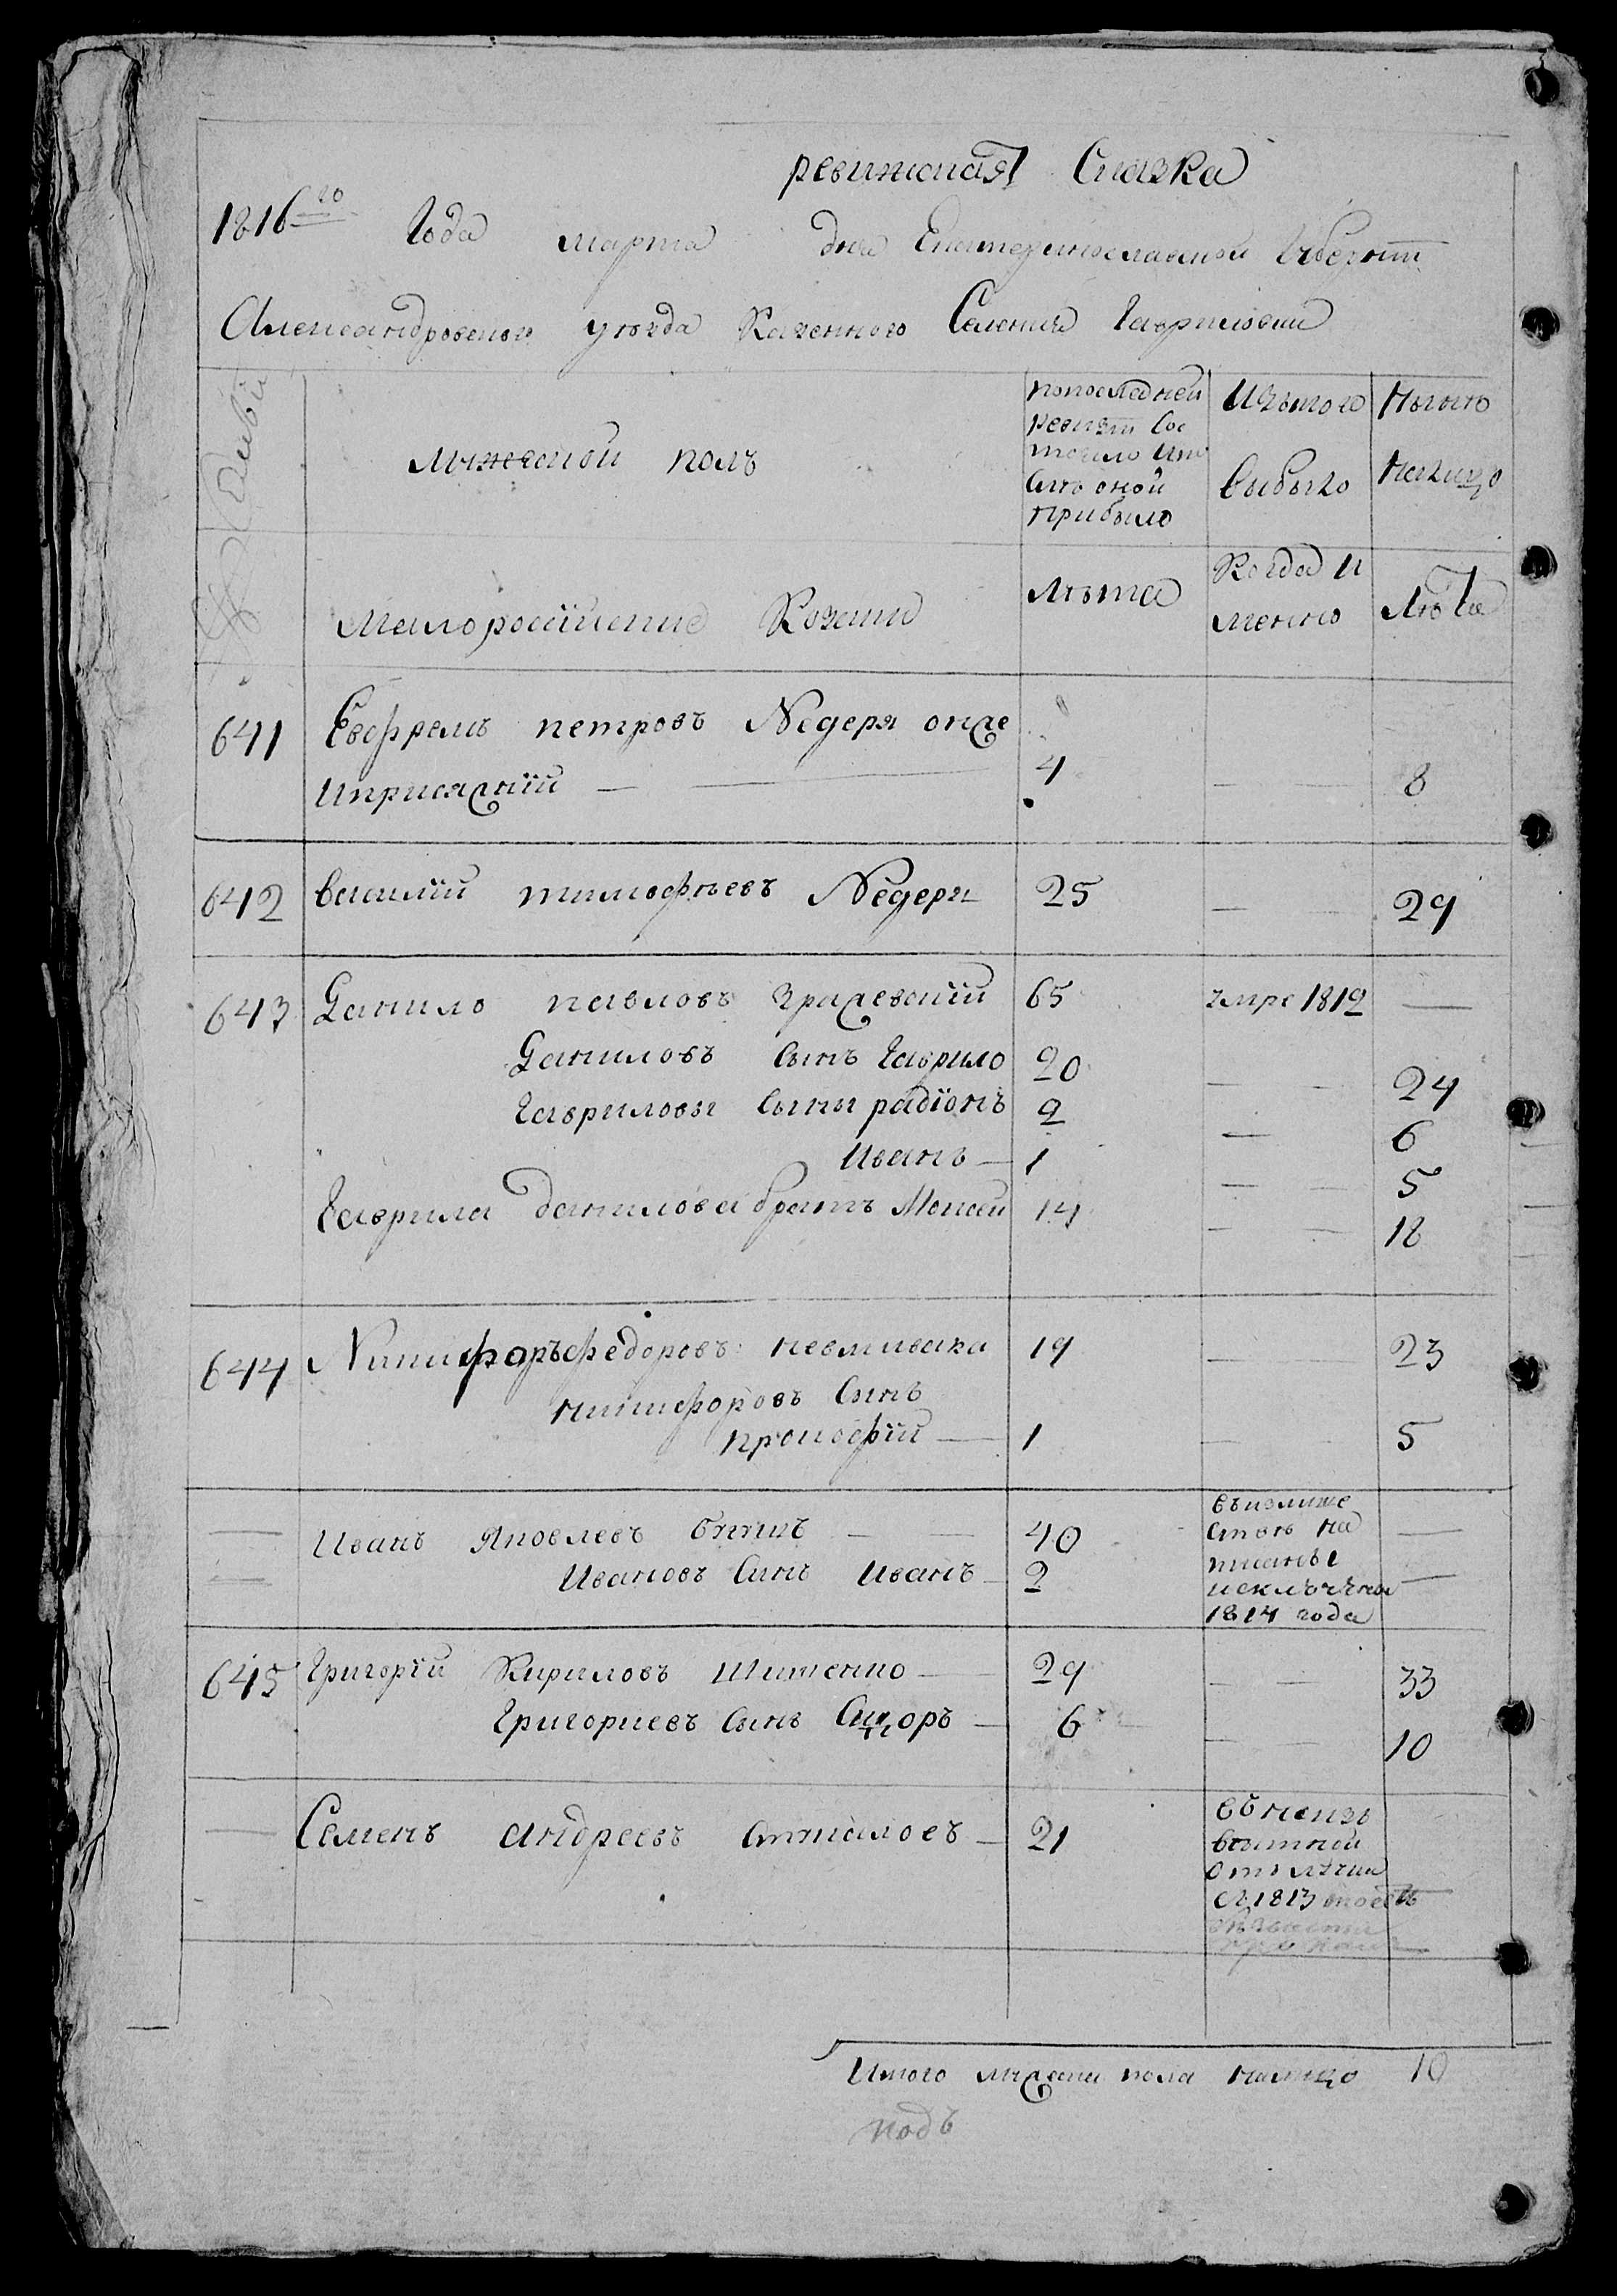 ревижская Сказка
1816го Года марта дня Екатеринославской Губернии
Александровского уезда Казенного Селения Гавриловки
мужеской полъ
попоследней ревизіи Сос тояло ипо слѣ оной прибыло
Изътого выбыло
Нынѣ налицо
Малороссійские Козаки
Лѣта
Когда и менно
Лѣта
641 Евфремъ петровъ Nедеря онже
иприсяжній — — 4 — — 8
642 василій тимофѣевъ Nедеря 25 — — 29
643 Данило павловъ зражевскій 65 умре 1812 —
Даниловъ сынъ Гаврило 20 — — 24
Гавриловы сыны радіонъ 2 — 6
Иванъ — 1 — — 5
Гаврила данилова братъ Мойсей 14 — — 18
644 Nикифоръ федоровъ невмивака 19 — — 23
никифоровъ Сынъ
прокофій — 1 — — 5
— Иванъ Яковлевъ — — 40 —
— Ивановъ Синъ Иванъ — 2 —
въизлише ствѣ на писаны исключены 1814 года
645 Григорій Кириловъ Шитенко — 29 — — 33
Григориевъ Сынъ Сидоръ — 6 — — 10
— Семенъ андреевъ — 21
1813
Итого мужска пола налицо 10
подъ